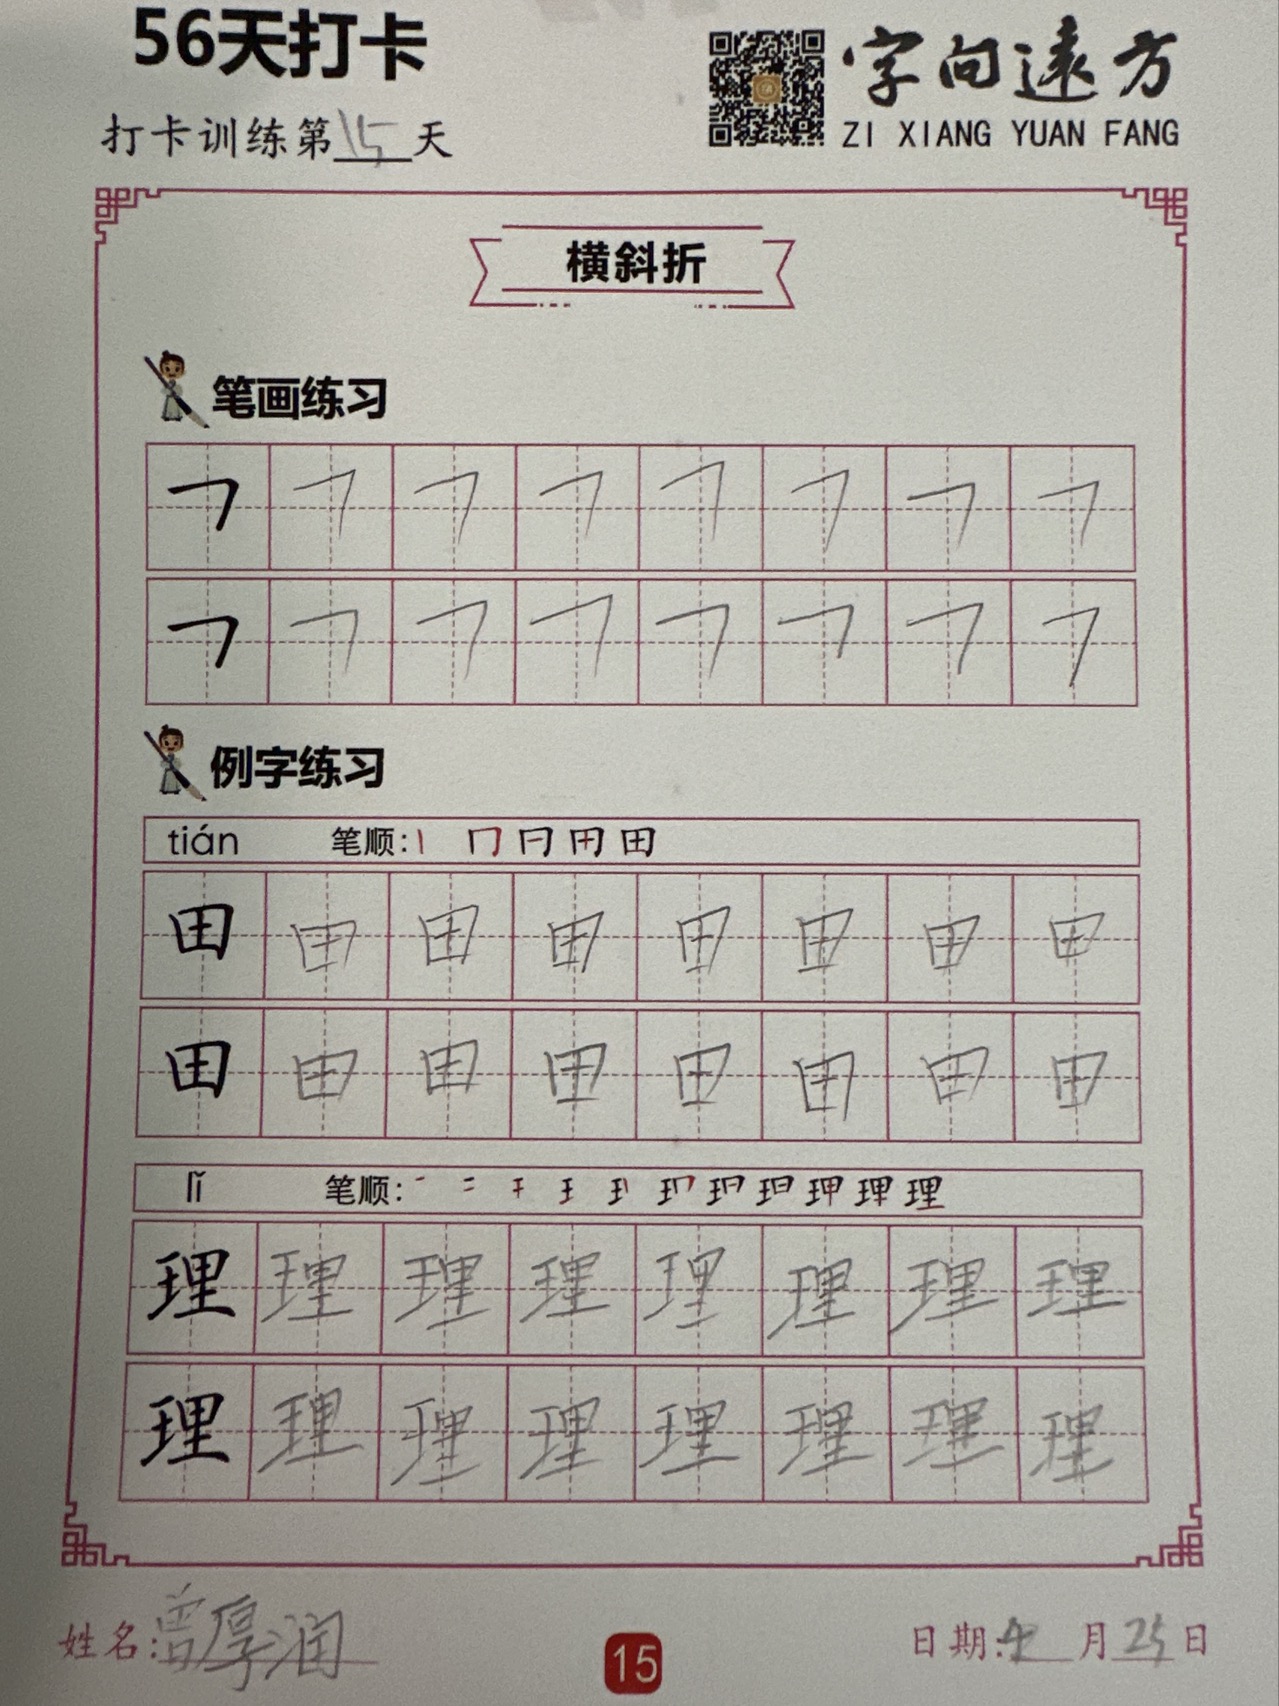 56天打卡
字向遠方
打卡训练第15天
ZI XIANG YUAN FANG
横斜折
笔画练习
㇕ ㇕ ㇕ ㇕ ㇕ ㇕ ㇕ ㇕
㇕ ㇕ ㇕ ㇕ ㇕ ㇕ ㇕ ㇕
例字练习
tián 笔顺: 丨 冂 冃 田 田
田 田 田 田 田 田 田 田
田 田 田 田 田 田 田 田
lǐ 笔顺:
理 理 理 理 理 理 理 理
理 理 理 理 理 理 理 理
姓名:曾厚润
15
日期:4月25日